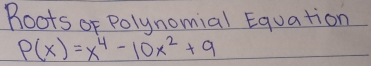 Roots OF Polynomial Equation
P(x) = x⁴ - 10x² + 9